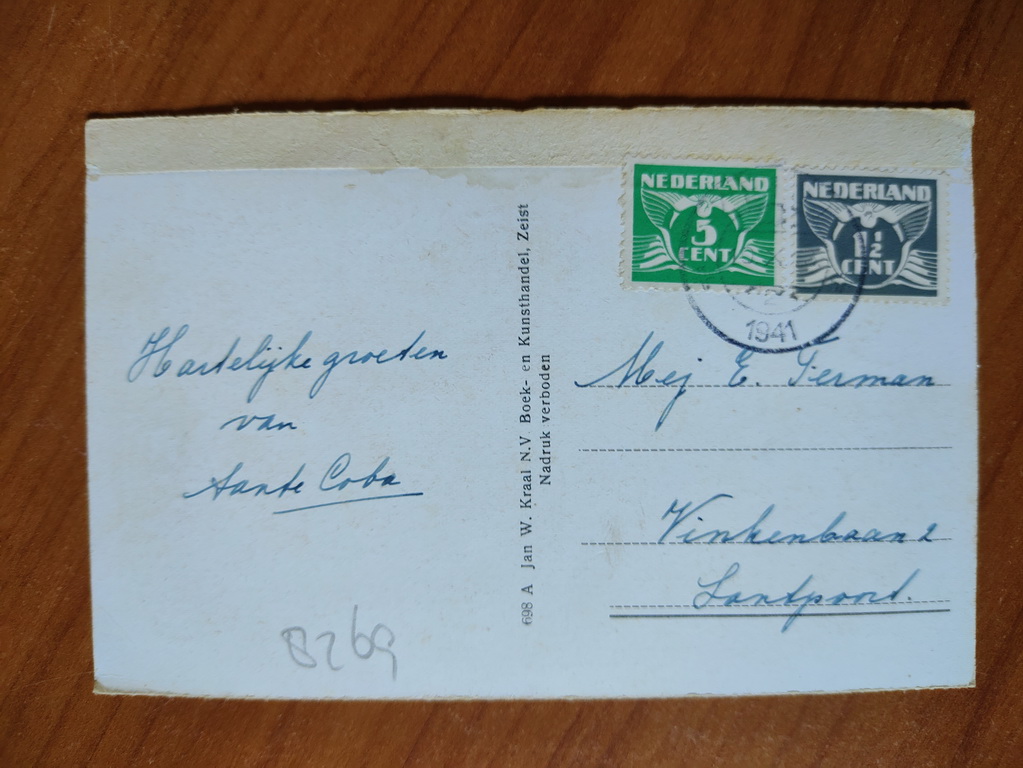 NEDERLAND
5
CENT
NEDERLAND
1½
CENT
1941
Hartelijke groeten
van
tante Coba
698 A Jan W. Kraal N.V. Boek- en Kunsthandel, Zeist
Nadruk verboden
Mej E. German
Vinkenbaan 2
Santpoort.
8269